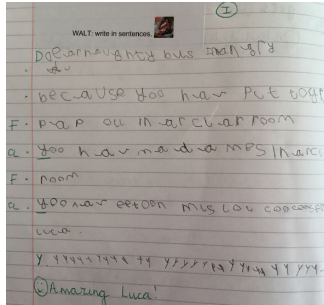 I
WALT: write in sentences.
Dear naughty bus Im angry
because yoo hav Put toy
F. pap ou in ar clar room
a. yoo hav mad a mes in arcl
F. room
a. yoo hav eetoon mis Lou
Luca.
y yyyyyyyyy yy yyyyyyy yyyyy yy yyy
Amazing Luca!